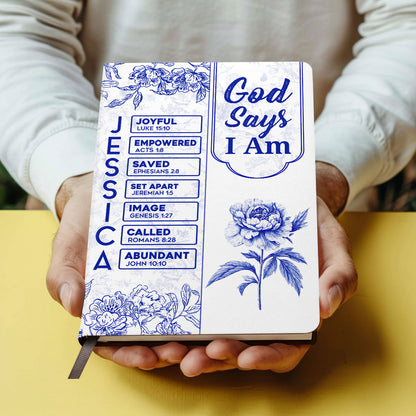 JESSICA
JOYFUL
LUKE 15:10
EMPOWERED
ACTS 1:8
SAVED
EPHESIANS 2:8
SET APART
JEREMIAH 1:5
IMAGE
GENESIS 1:27
CALLED
ROMANS 8:28
ABUNDANT
JOHN 10:10
God
Says
I Am